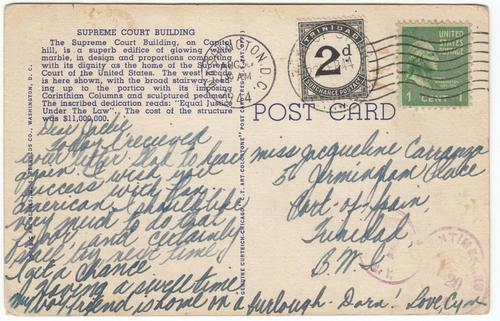 SUPREME COURT BUILDING
The Supreme Court Building, on Capitol
hill, is a superb edifice of glowing white
marble, in design and proportions comporting
with its dignity as the home of the Supreme
Court of the United States. The west facade
is here shown, with the broad stairway lead-
ing up to the portico with its imposing
Corinthian Columns and sculptured pediment.
The inscribed dedication reads: "Equal Justice
Under The Law". The cost of the structure
was $11,000,000.
WASHINGTON, D. C.
GENUINE CURTEICH-CHICAGO "C.T. ART-COLORTONE" POST CARD
WASHINGTON D.C.
TRINIDAD
2d
SURCHARGE POSTAGE
UNITED
STATES
POSTAGE
1 CENT 1
POST CARD
Dear Jackie
Today I received
your letter. Glad to hear
again. I wish you
success with
American. I should like
very much to do that
and certainly
next time
I get a chance
Am having a swell time.
My boyfriend is home on a furlough. Darn! Love,
Miss Jacqueline Carranza
5 Jerningham Place
Port of Spain,
Trinidad
B.W.I.